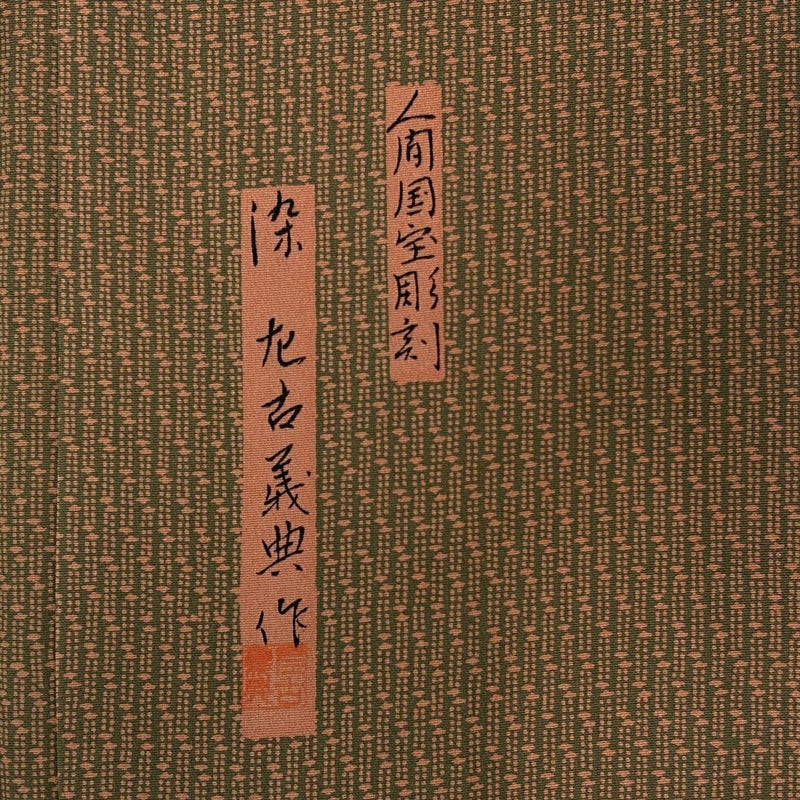 人間国宝彫刻
染 古義典作